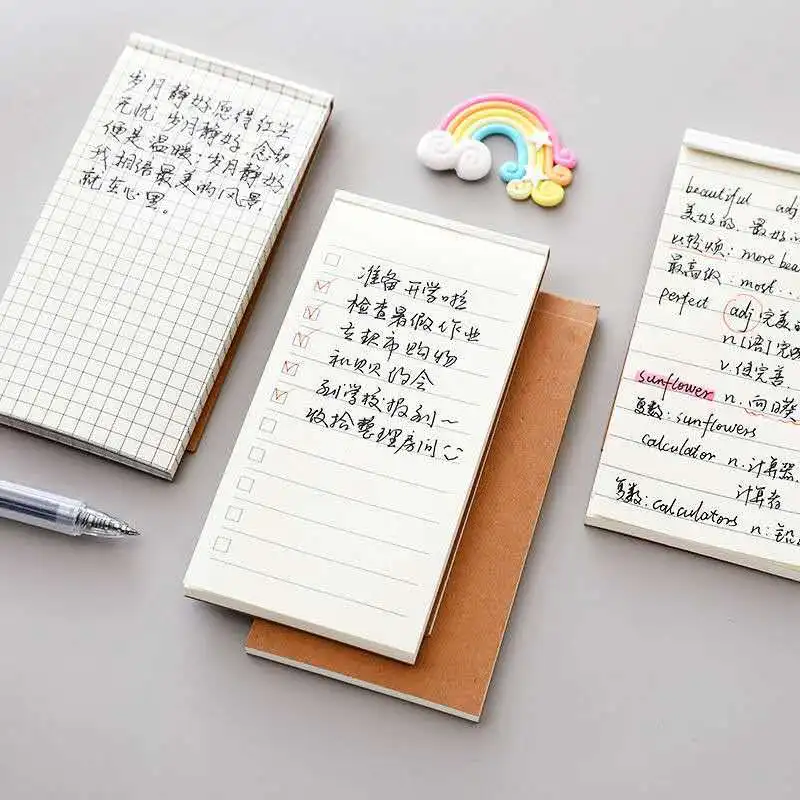 岁月静好愿得红尘
无忧 岁月静好,念起
便是温暖;岁月静好
我相信最美的风景,
就在心里。
准备开学啦
检查暑假作业
去超市购物
和贝贝约会
到学校报到~
收拾整理房间
beautiful adj
美好的.最好
比较级: more bea
最高级: most...
perfect adj 完美
n.[语]完
v.使完善.
sunflower n. 向日葵
复数: sunflowers
calculator n.计算器
计算者
复数: calculators n: